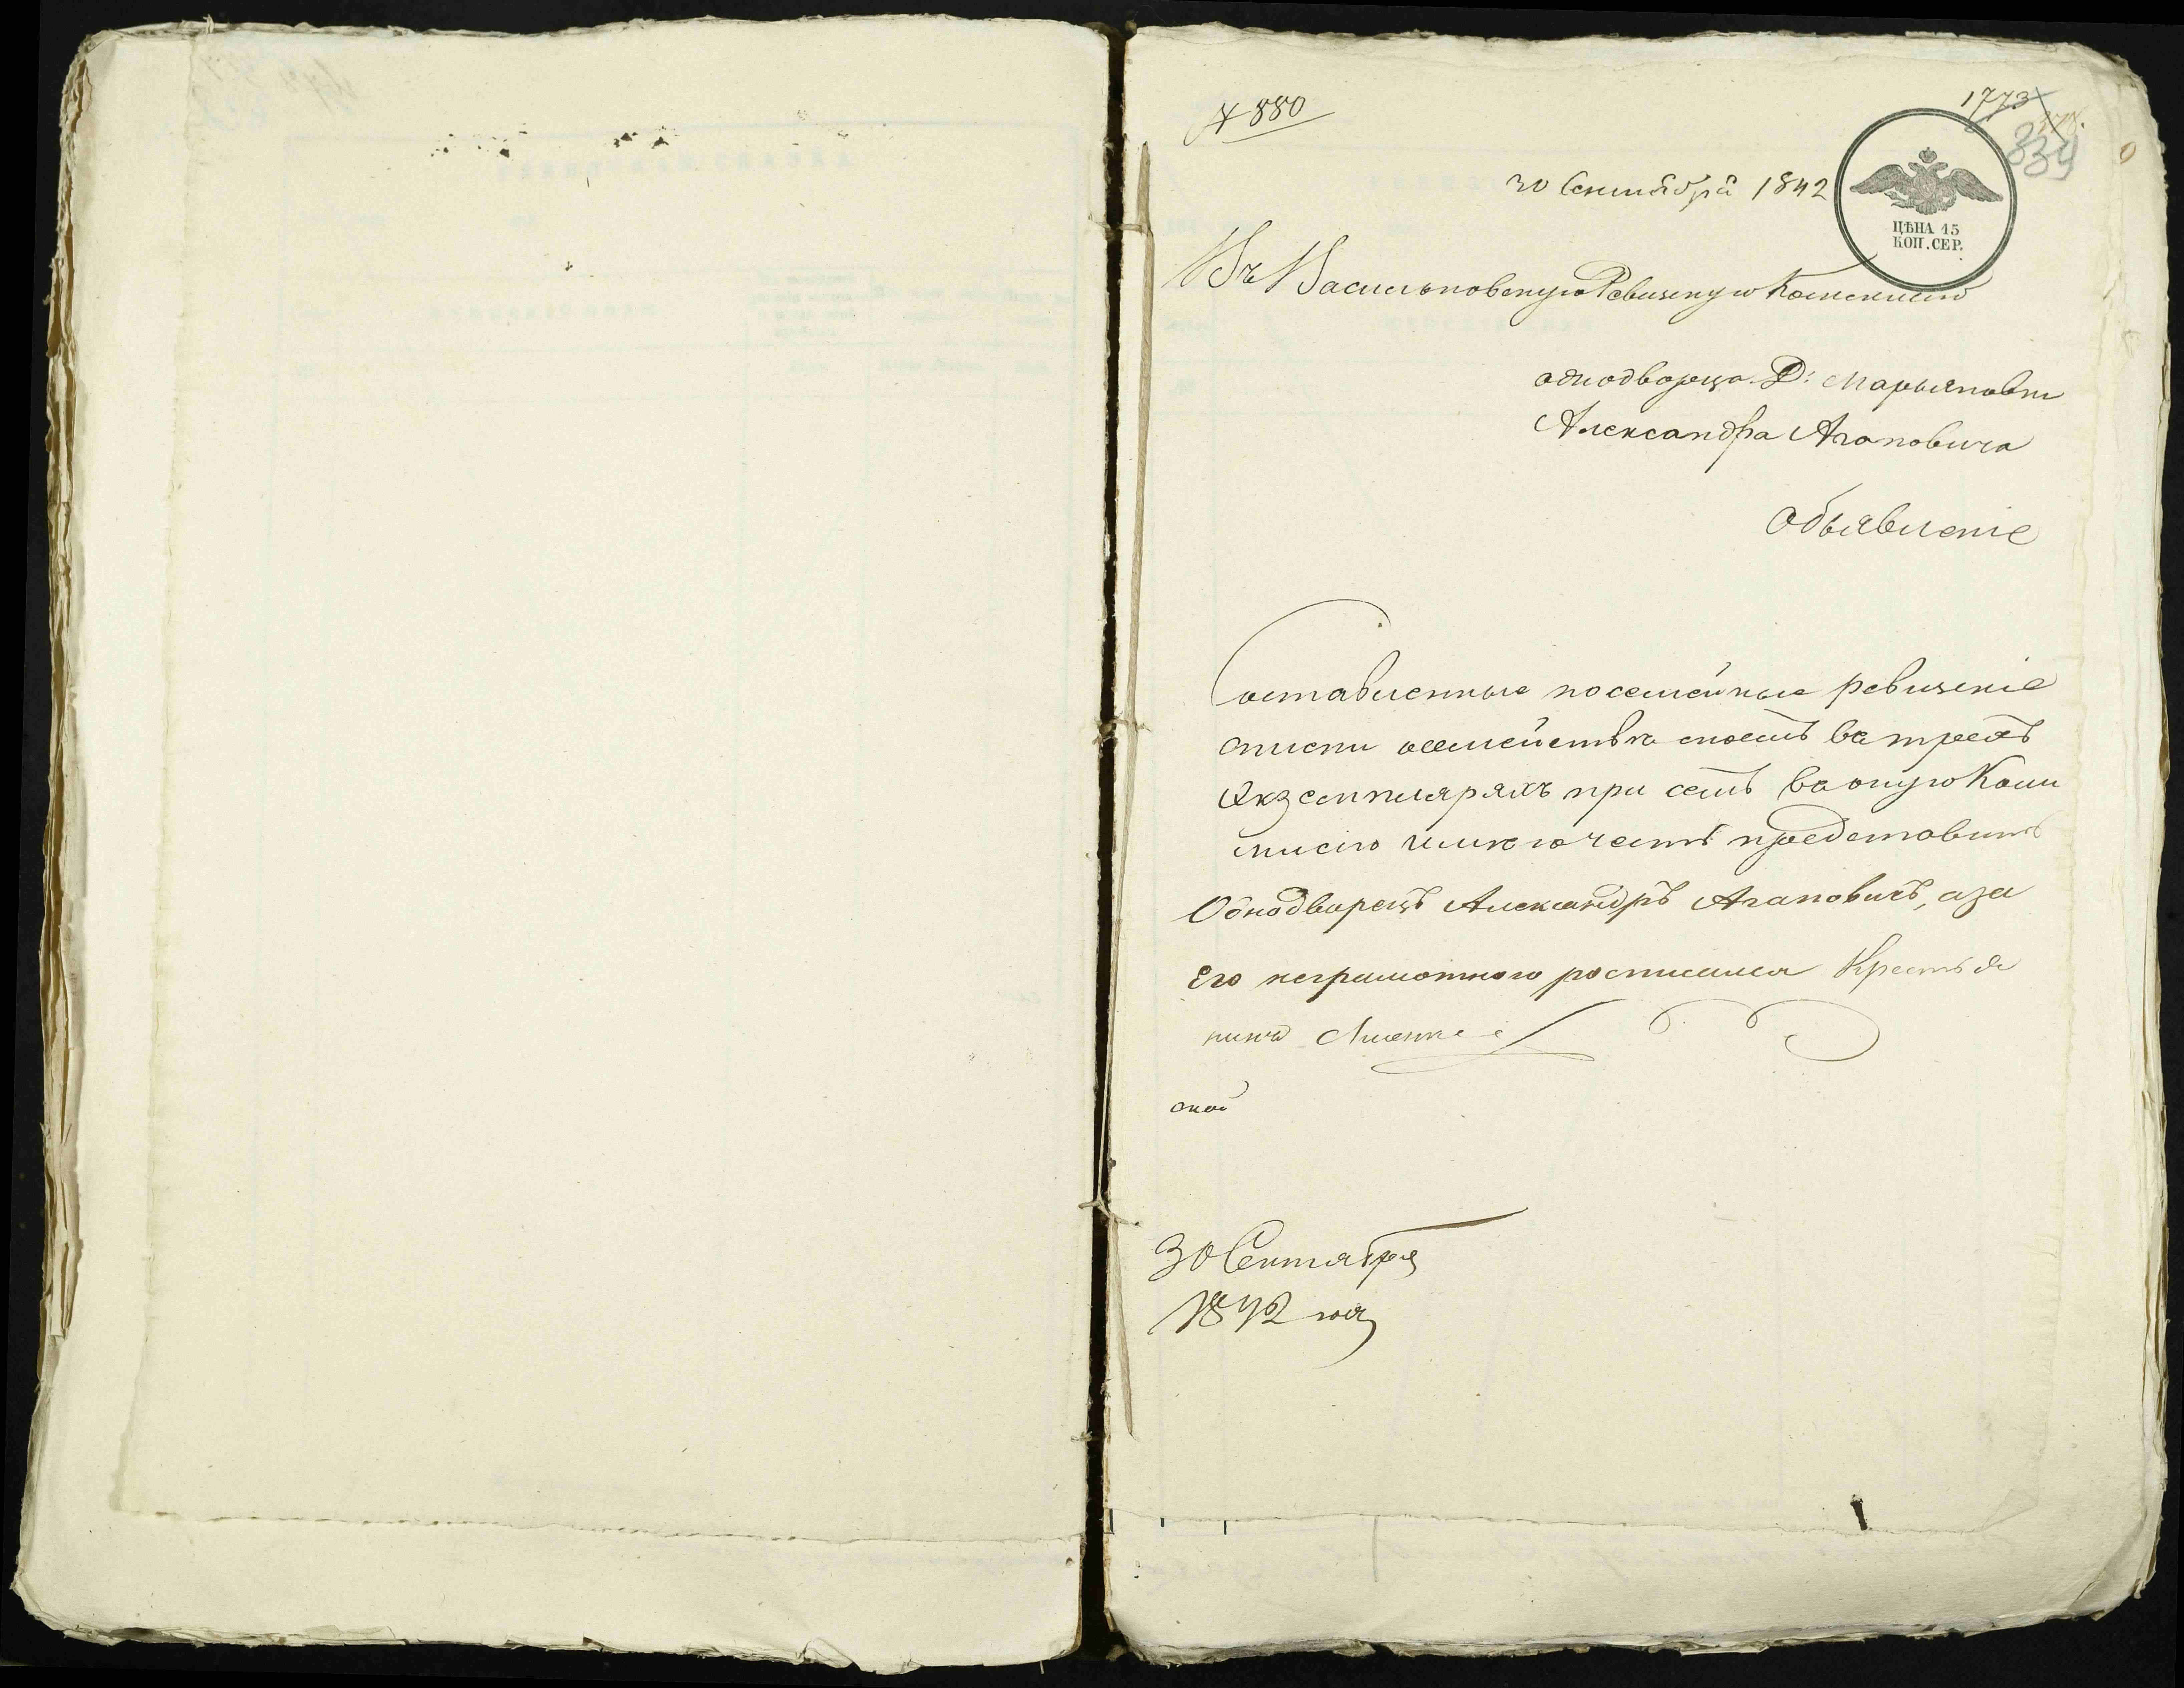 № 880
1773
334
30 Сентября 1842
ЦѢНА 15
КОП. СЕР.
Въ Васильковскую Ревизскую Комисию
однодворца Д: Марьяновки
Александра Агаповича
Объявленіе
Составленные посемейные ревизскіе
списки о семействѣ моемъ въ трехъ
Экземплярахъ при семъ въ оную Коми
мисію имѣю честь представить
Однодворецъ Александръ Агаповичъ, а за
Его неграмотного росписался Крестья
нинъ
30 Сентября
1842 года